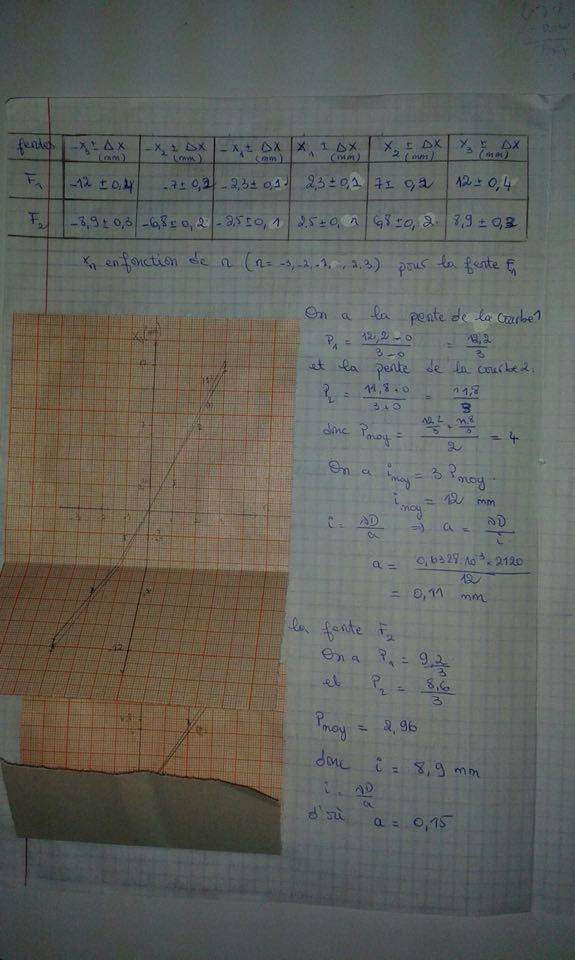 fentes -X3 ± ΔX (mm) -X2 ± ΔX (mm) -X1 ± ΔX (mm) X1 ± ΔX (mm) X2 ± ΔX (mm) X3 ± ΔX (mm)
F1 -12 ± 0,4 -7 ± 0,2 -2,3 ± 0,1 2,3 ± 0,1 7 ± 0,2 12 ± 0,4
F2 -8,9 ± 0,3 -6,8 ± 0,2 -2,5 ± 0,1 2,5 ± 0, 6,8 ± 0,2 8,9 ± 0,3
Xn en fonction de n (n = -3, -2, -1, , 2, 3) pour la fente F1
On a la pente de la courbe 1
P1 = 12,2 - 0 / 3 - 0 = 12,2 / 3
et la pente de la courbe 2:
P2 = 11,8 + 0 / 3 + 0 = 11,8 / 3
donc Pmoy = 12,2/3 + 11,8/3 / 2 = 4
On a imoy = 3 Pmoy.
imoy = 12 mm
i = λD / a ⇒ a = λD / i
a = 0,6328.10⁻³ × 2120 / 12
= 0,11 mm
la fente F2
On a P1 = 9,2 / 3
et P2 = 8,6 / 3
Pmoy = 2,96
donc i = 8,9 mm
i = λD / a
d'où a = 0,15